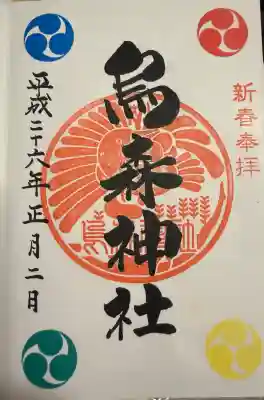 新春奉拝
烏森神社
平成二十六年正月二日